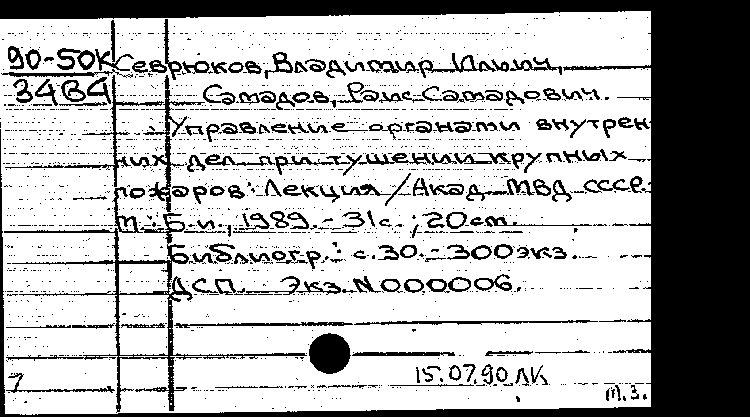 90-50К Севрюков, Владимир Ильич,
34В4 Самадов, Раис Самадович.
Управление органами внутрен
них дел при тушении крупных
пожаров: Лекция / Акад. МВД СССР.-
М.: Б.и., 1989.- 31с.; 20см.
Библиогр.: с.30.- 300экз.
ДСП. Экз.N000006.
15.07.90 ЛК
7 т.з.